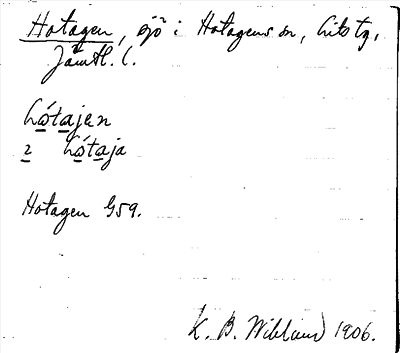 Hotagen, sjö i Hotagens sn, Lits tg,
Jämtl. l.
hótajen
2 hótaja
Hotagen G59.
K. B. Wiklund 1906.